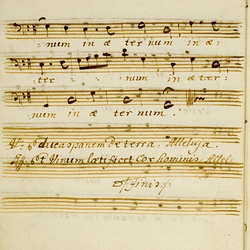 num in æ ter num in æ
ter num in æ ter
num in æ ter num.
V. educas panem de terra. Alleluja.
R. et Vinum lætificet Cor hominis. Allel.
Finis